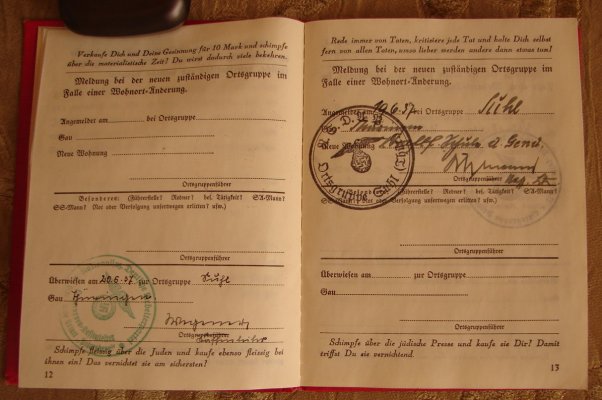 Verkaufe Dich und Deine Gesinnung für 10 Mark und schimpfe
über die materialistische Zeit! Du wirst dadurch viele bekehren.
Meldung bei der neuen zuständigen Ortsgruppe im
Falle einer Wohnort-Änderung.
Angemeldet am bei Ortsgruppe:
Gau
Neue Wohnung
Ortsgruppenführer
Besonderes: (Führerstelle? Redner? bej. Tätigkeit? SA-Mann?
SS-Mann? Not oder Verfolgung unterwegen erlitten? usw.)
Überwiesen am 20.6.37 zur Ortsgruppe Suhl
Gau Thüringen
Ortsgruppenführer
Schimpfe fleissig über die Juden und kaufe ebenso fleissig bei
ihnen ein! Das vernichtet sie am sichersten!
12
Rede immer von Taten, kritisiere jede Tat und halte Dich selbst
fern von allen Taten, umso lieber werden andere dann etwas tun!
Meldung bei der neuen zuständigen Ortsgruppe im
Falle einer Wohnort-Änderung.
Angemeldet am 29.6.37 bei Ortsgruppe: Suhl
Gau Thüringen
Neue Wohnung
Ortsgruppenführer
SS-Mann? Not oder Verfolgung unterwegen erlitten? usw.)
Ortsgruppenführer
Überwiesen am zur Ortsgruppe
Gau
Ortsgruppenführer
Schimpfe über die jüdische Presse und kaufe sie Dir! Damit
triffst Du sie vernichtend.
13
N.S.D.A.P.
Ortsgruppe Suhl